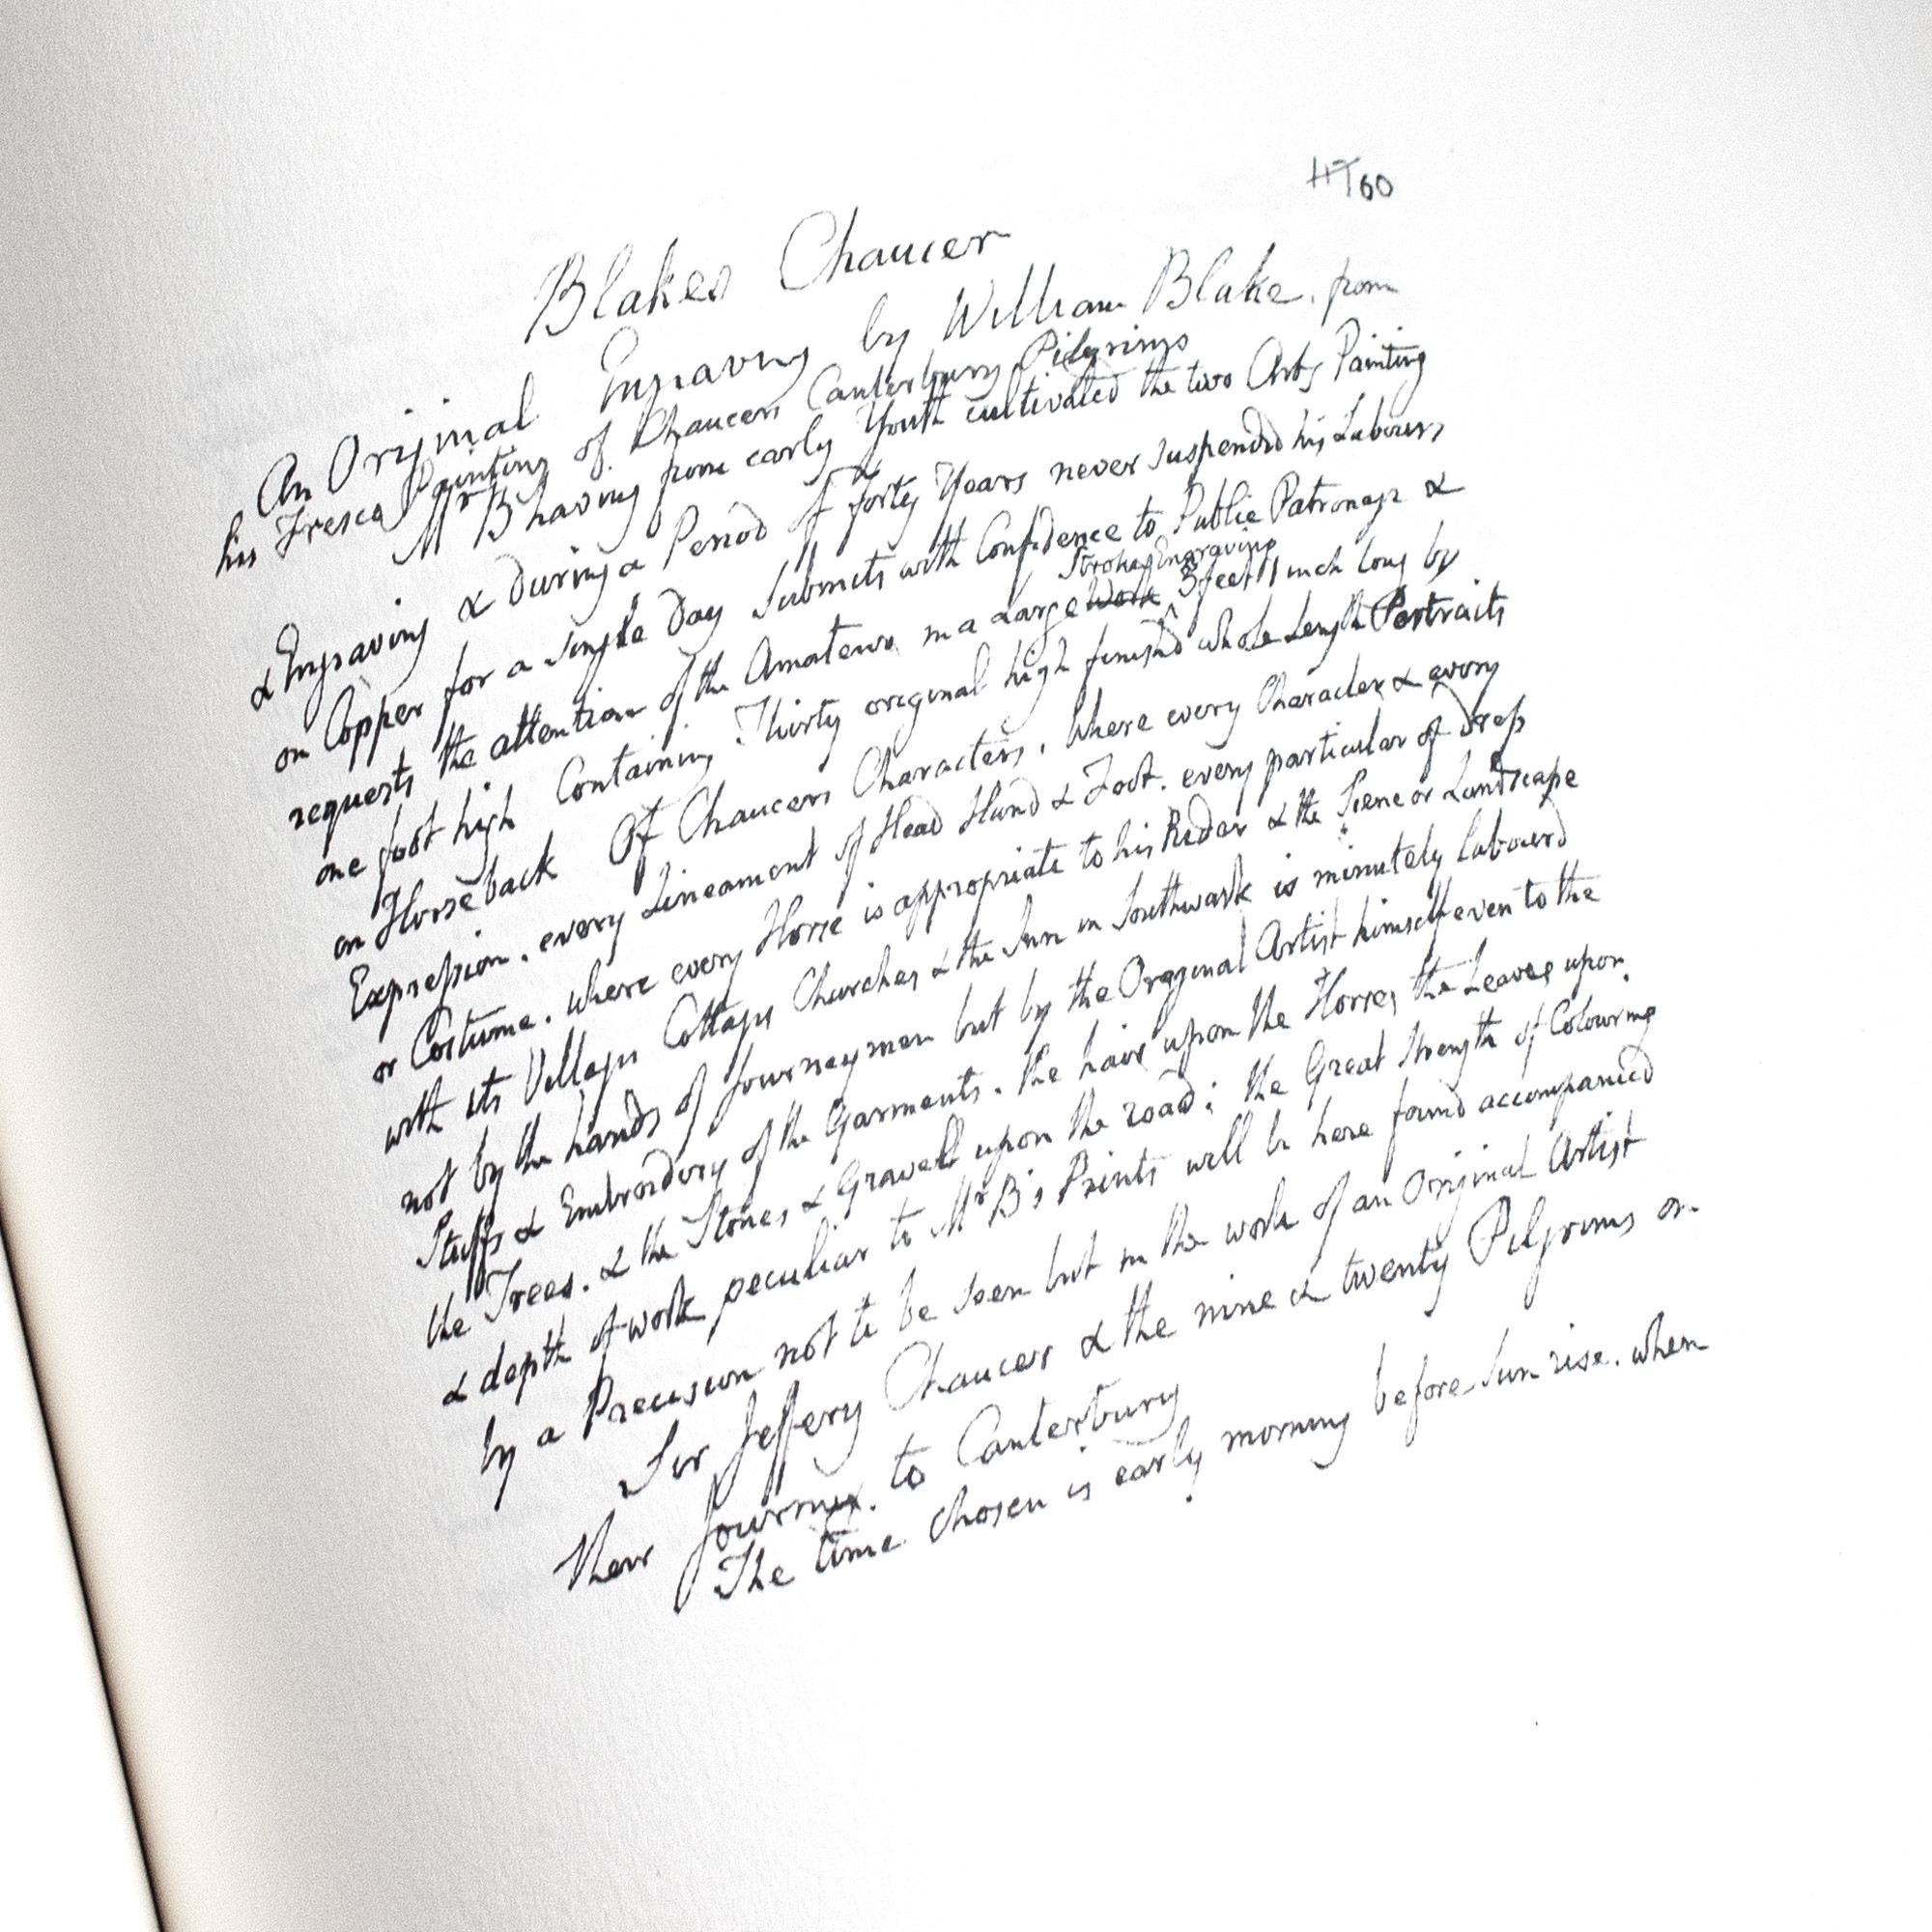 HT60
Blakes Chaucer
An Original Engraving by William Blake. from
his Fresco Painting of Chaucers Canterbury Pilgrims
Mr B having from early Youth cultivated the two Arts Painting
& Engraving & during a Period of forty Years never suspended his Labours
on Copper for a single Day Submits with Confidence to Public Patronage &
requests the attention of the Amateurs in a Large Work Stroke Engraving 3 feet 1 inch long by
one foot high Containing Thirty original high finishd whole Length Portraits
on Horseback Of Chaucers Characters. Where every Character & every
Expression. every Lineament of Head Hand & Foot. every particular of Dress
or Costume. where every Horse is appropriate to his Rider & the Scene or Landscape
with its Villages Cottages Churches & the Inn in Southwark is minutely labourd
not by the hands of Journeymen but by the Original Artist himself even to the
Stuffs & Embroidery of the Garments. the hair upon the Horses the Leaves upon
the Trees. & the Stones & Gravell upon the road; the Great Strength of Colouring
& depth of work peculiar to Mr B's Prints will be here found accompanied
by a Precision not to be seen but in the work of an Original Artist
Sir Jeffery Chaucer & the nine & twenty Pilgrims on
their Journey to Canterbury
The time chosen is early morning before Sun rise. when